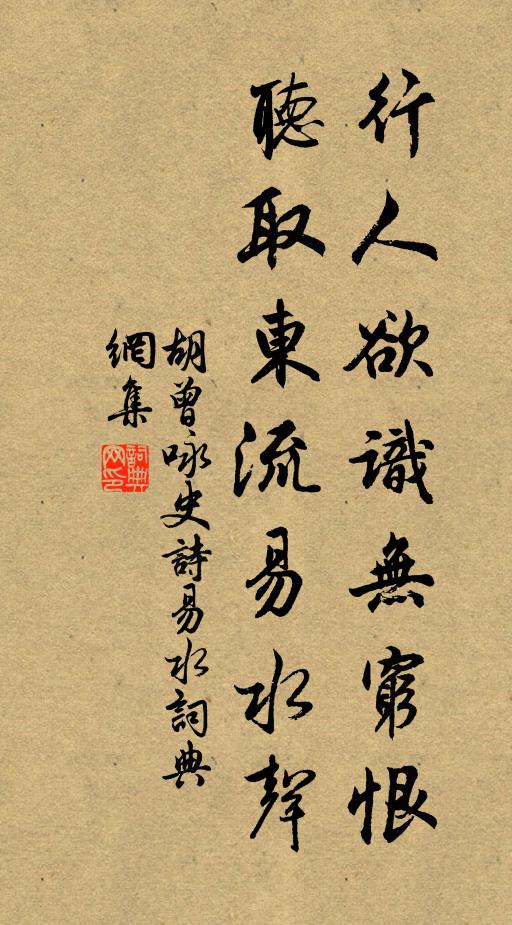 行人欲識無窮恨
聽取東流易水聲
胡曾咏史詩易水詞典
網集
詞典
网印